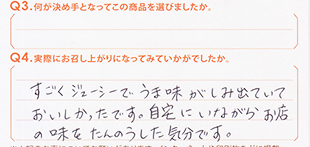 Q3.何が決め手となってこの商品を選びましたか。
Q4.実際にお召し上がりになってみていかがでしたか。
すごくジューシーでうま味がしみ出ていて
おいしかったです。自宅にいながらお店
の味をたんのうした気分です。